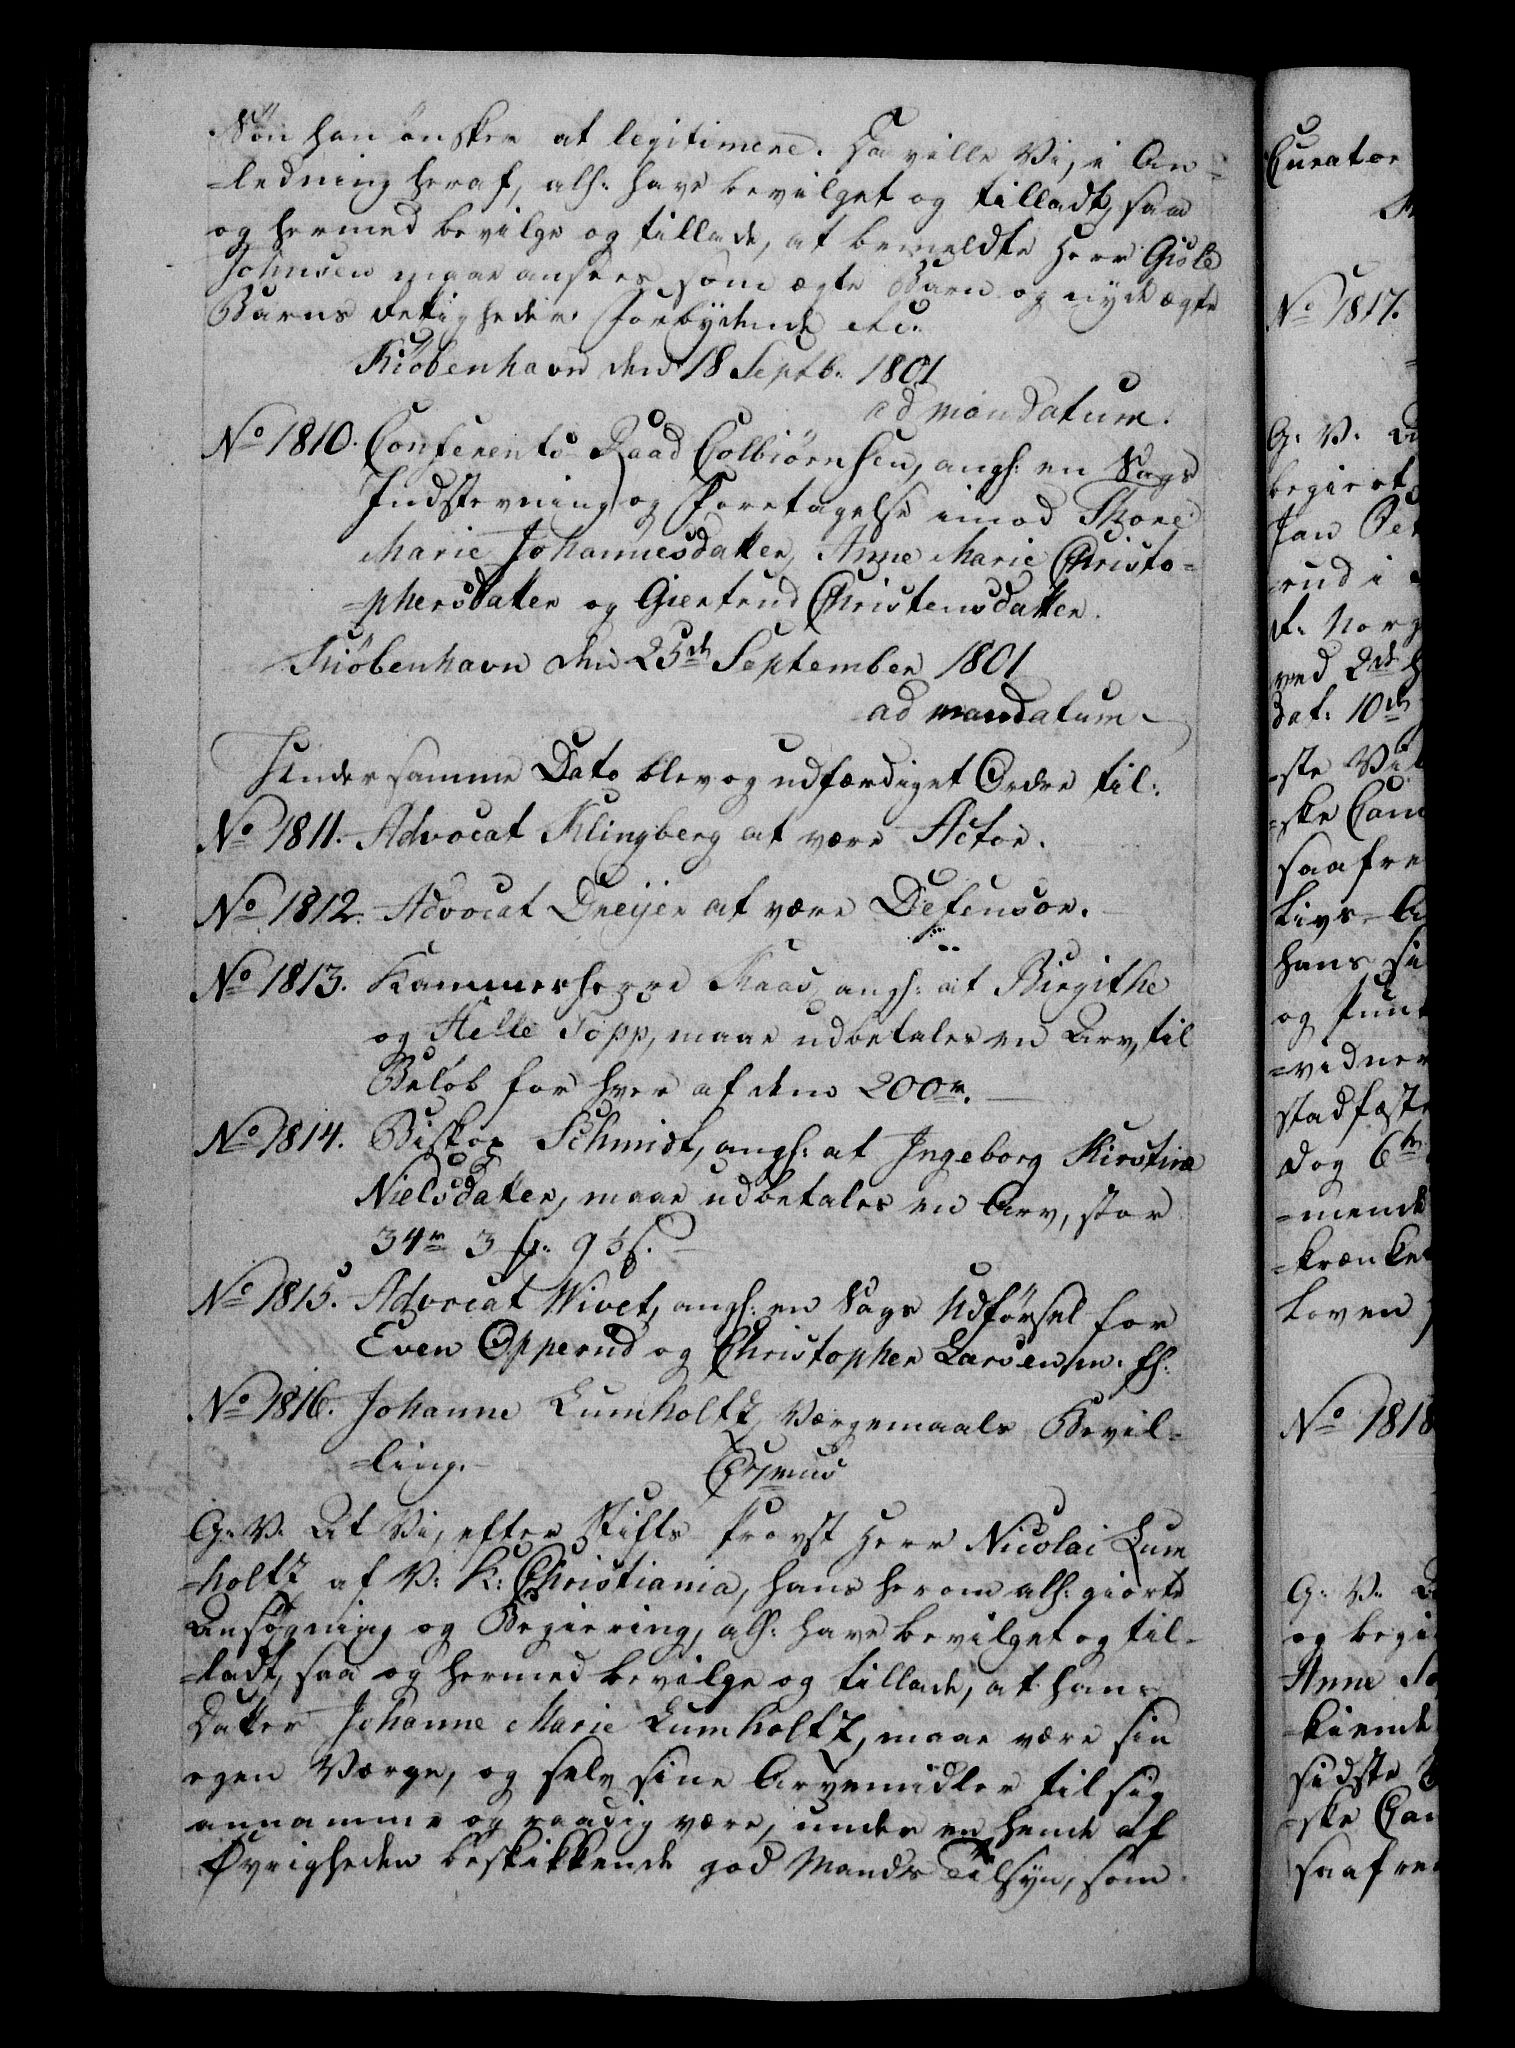 Søn han ønsker at legitimere. Saa ville Vi, i An-
=ledning heraf, allr: have bevilget og tilladt, saa
og hermed bevilge og tillade, at bemeldte Herr Gisle
Johnsen maae ansees som ægte Barn og nyde ægte
Barns Rettigheder. Forbydende etc.
Kiöbenhavn den 18 Septb: 1801
ad mandatum.
No 1810. Conferents-Raad Colbiörnsen, angl: en Sags
Indstevning og Foretagelse imod Thore
Marie Johannesdatter, Anne Marie Christo=
=phersdatter og Giertrud Christensdatter.
Kiöbenhavn den 25de September 1801
ad mandatum
Under samme Dato blev og udfærdiget Ordre til:
No 1811. Advocat Klingberg at være Actor.
No 1812. Advocat Dreijer at være Defensor.
No 1813. Kammerherre Kaas, angl: at Birgithe
og Helle Topp, maae udbetales en Arv, til
Beløb for hver af dem 200r.
No 1814. Biskop Schmidt, angl: at Ingeborg Kirstine
Nielsdatter, maae udbetales en Arv, stor
34r 3 9 5 s.
No 1815. Advocat Wivet, angl: en Sags Udførsel for
Even Opperud og Christopher Larsen m: fl:
No 1816. Johanne Lumholtz Værgemaals Bevil=
=ling.
G: V: At Vi, efter Stifts Provst Herr Nicolai Lum
=holtz af V: K: Christiania, hans herom allr: giorte
Ansøgning og Begiering, allr: have bevilget og til-
=ladt, saa og hermed bevilge og tillade, at hans
Datter Johanne Marie Lumholtz, maae være sin
egen Værge, og selv sine Arvemidler til sig
annamme og raadig være, under en hende af
Øvrigheden beskikkende god Mands Tilsyn, som
Curator
No 1817.
G: V: 
begiert
Jan
=rud i
N: Norg
ved 2de
Dat: 10de
=ste
=ske Can
saafre
Livs=A
hans
og
=vidner
stadfæste
Dog 6te
=mende
=krænket
Loven
No 1818
G: V:
og begi
Anne
=kiende
sidste
=ske Can
saafre